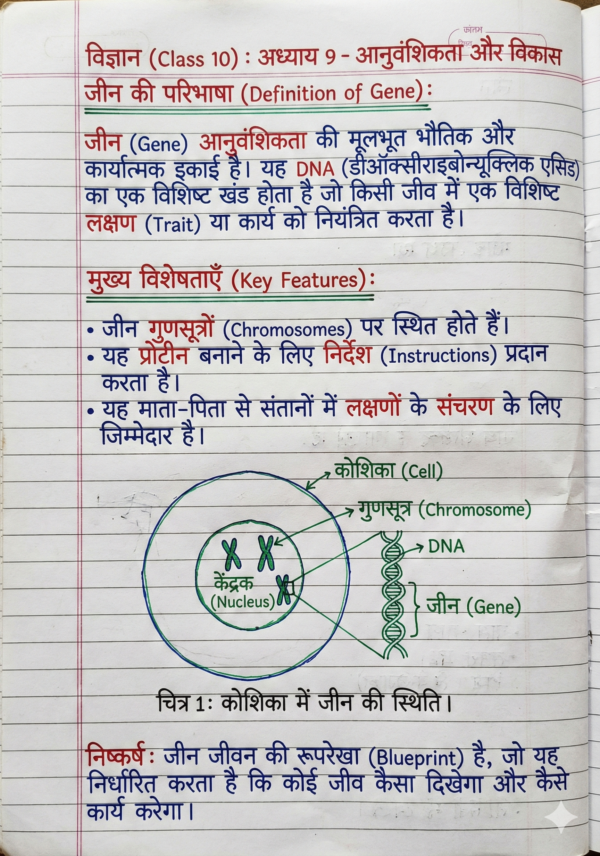 क्रांतम
विज्ञान (Class 10) : अध्याय 9 - आनुवंशिकता और विकास
जीन की परिभाषा (Definition of Gene) :
जीन (Gene) आनुवंशिकता की मूलभूत भौतिक और
कार्यात्मक इकाई है। यह DNA (डीऑक्सीराइबोन्यूक्लिक एसिड)
का एक विशिष्ट खंड होता है जो किसी जीव में एक विशिष्ट
लक्षण (Trait) या कार्य को नियंत्रित करता है।
मुख्य विशेषताएँ (Key Features) :
• जीन गुणसूत्रों (Chromosomes) पर स्थित होते हैं।
• यह प्रोटीन बनाने के लिए निर्देश (Instructions) प्रदान
करता है।
• यह माता-पिता से संतानों में लक्षणों के संचरण के लिए
जिम्मेदार है।
कोशिका (Cell)
गुणसूत्र (Chromosome)
DNA
केंद्रक
(Nucleus)
जीन (Gene)
चित्र 1: कोशिका में जीन की स्थिति।
निष्कर्ष : जीन जीवन की रूपरेखा (Blueprint) है, जो यह
निर्धारित करता है कि कोई जीव कैसा दिखेगा और कैसे
कार्य करेगा।